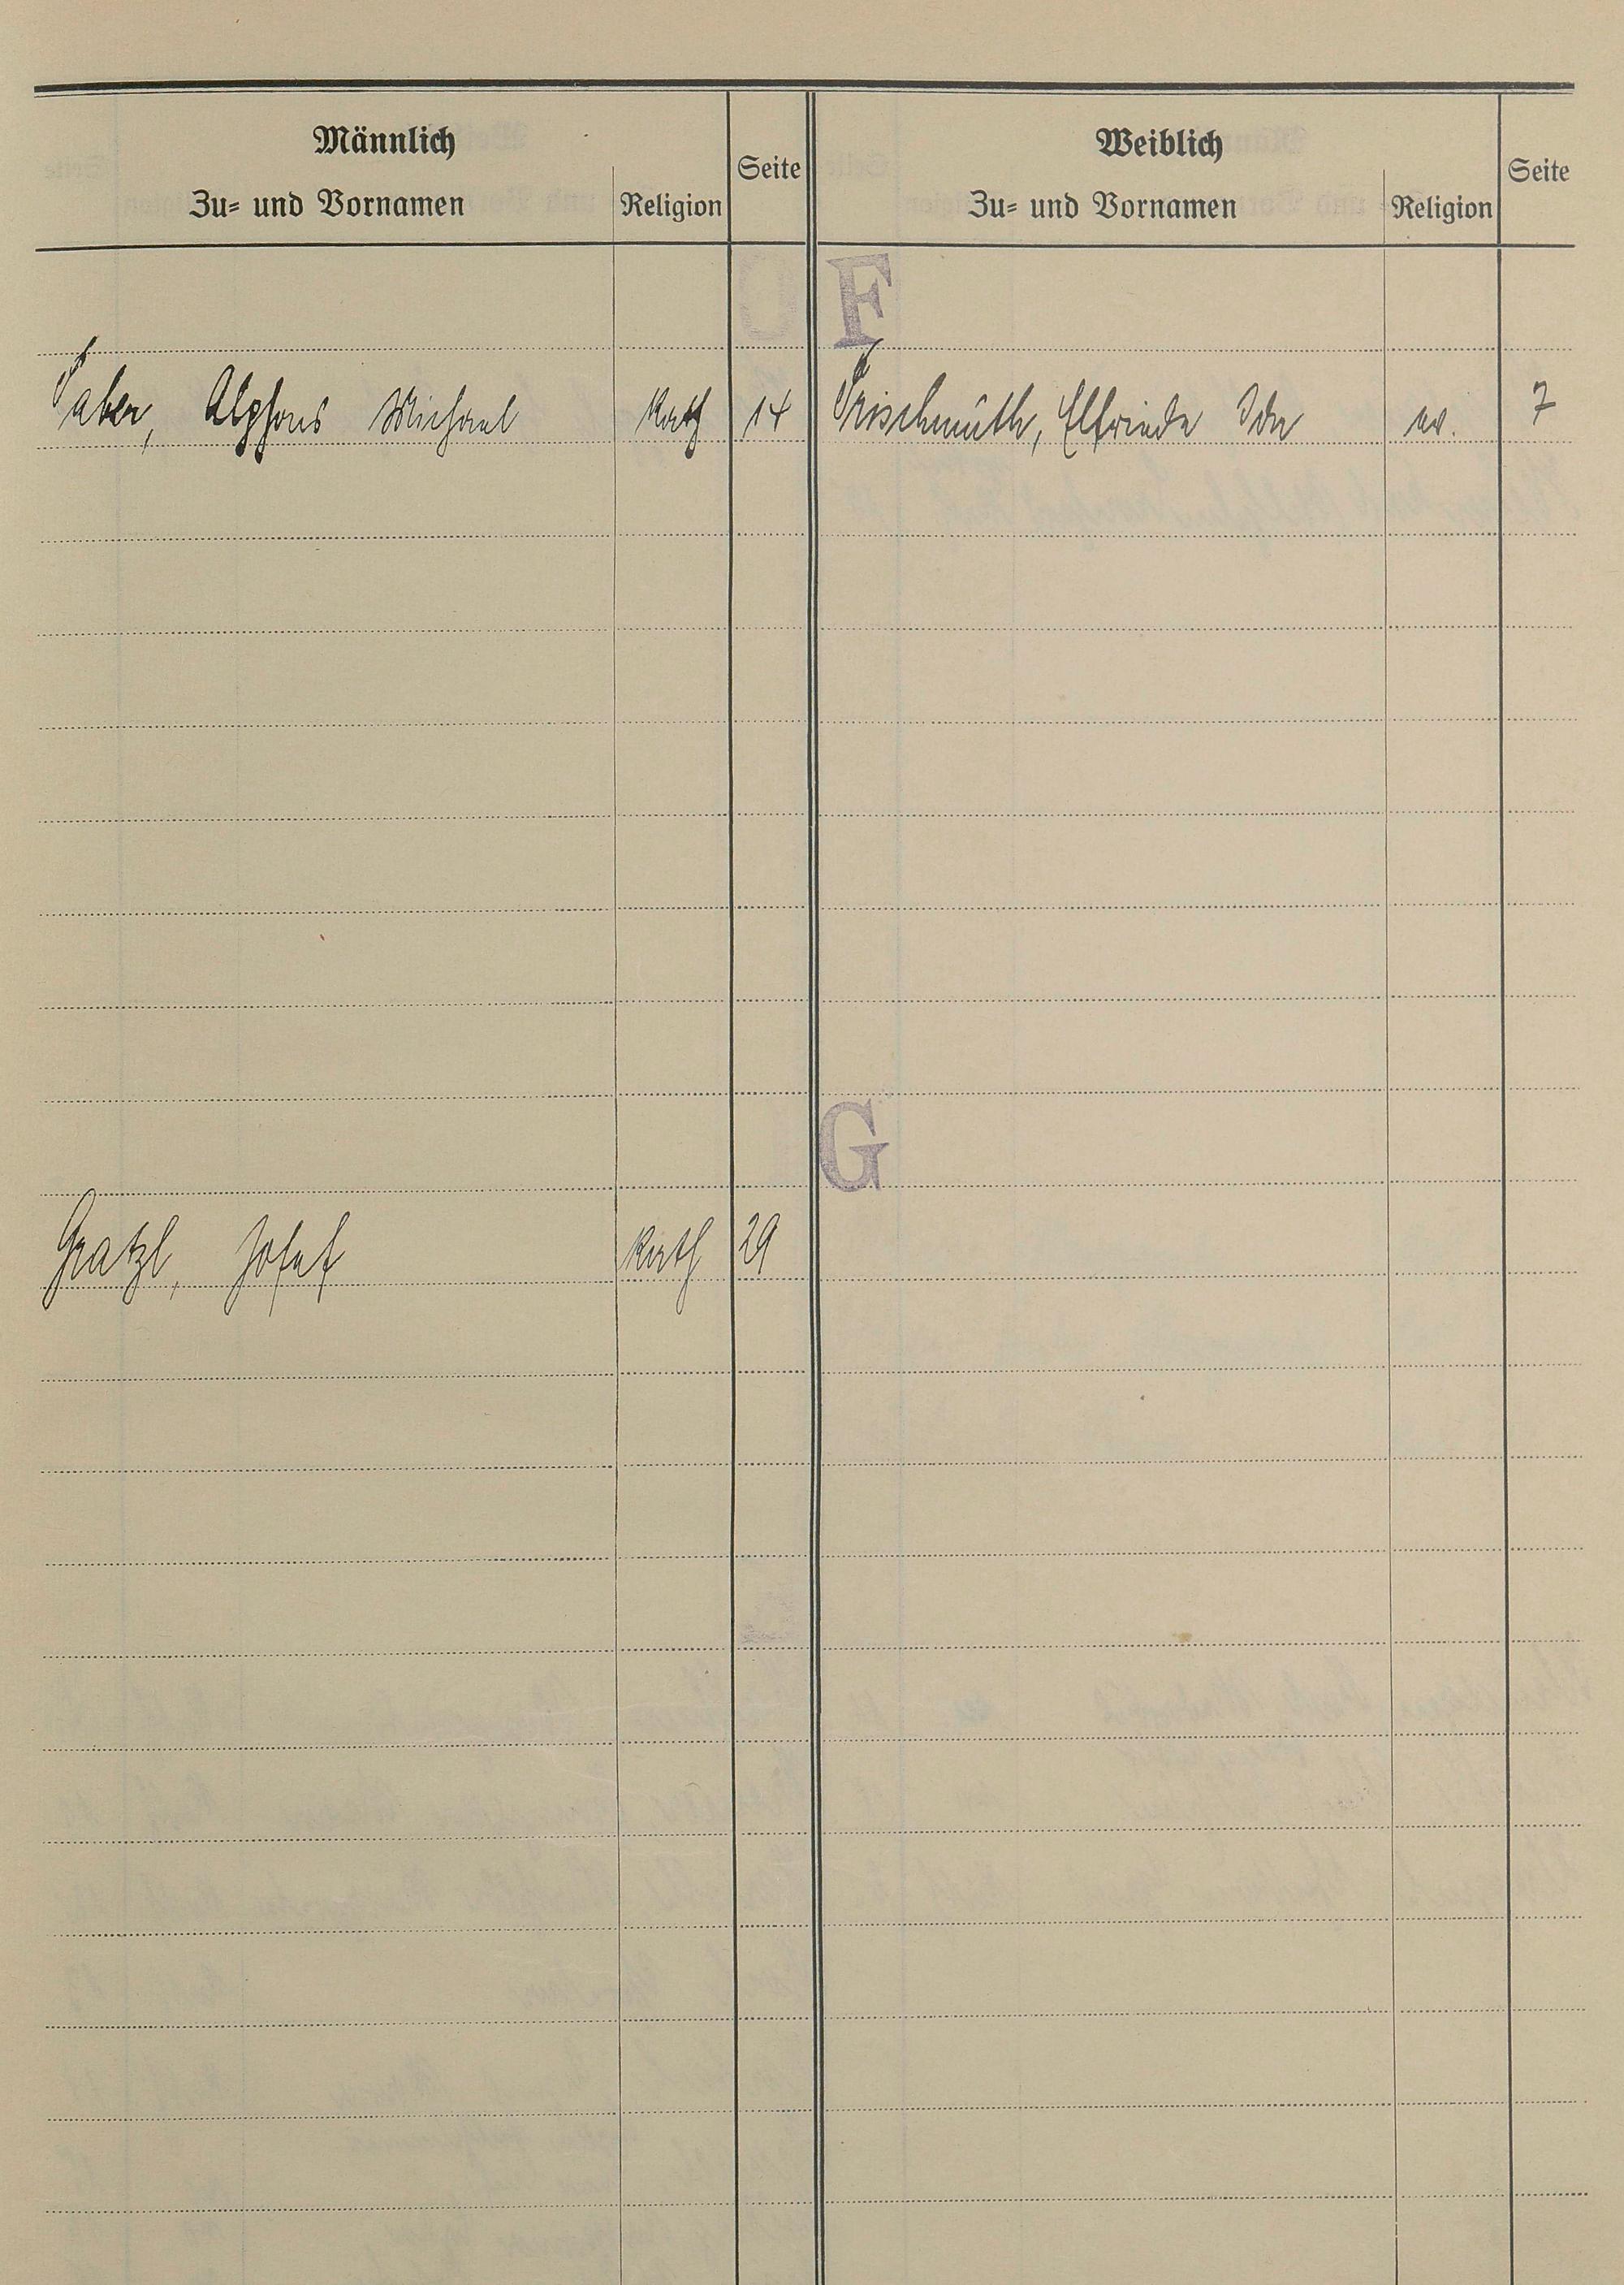 Männlich
Zu- und Vornamen
Religion
Seite
Weiblich
Zu- und Vornamen
Religion
Seite
F
Faber, Alphons Michael kath 14
Frischmuth, Elfriede Ida ev. 7
G
Gratzl, Josef kath 29